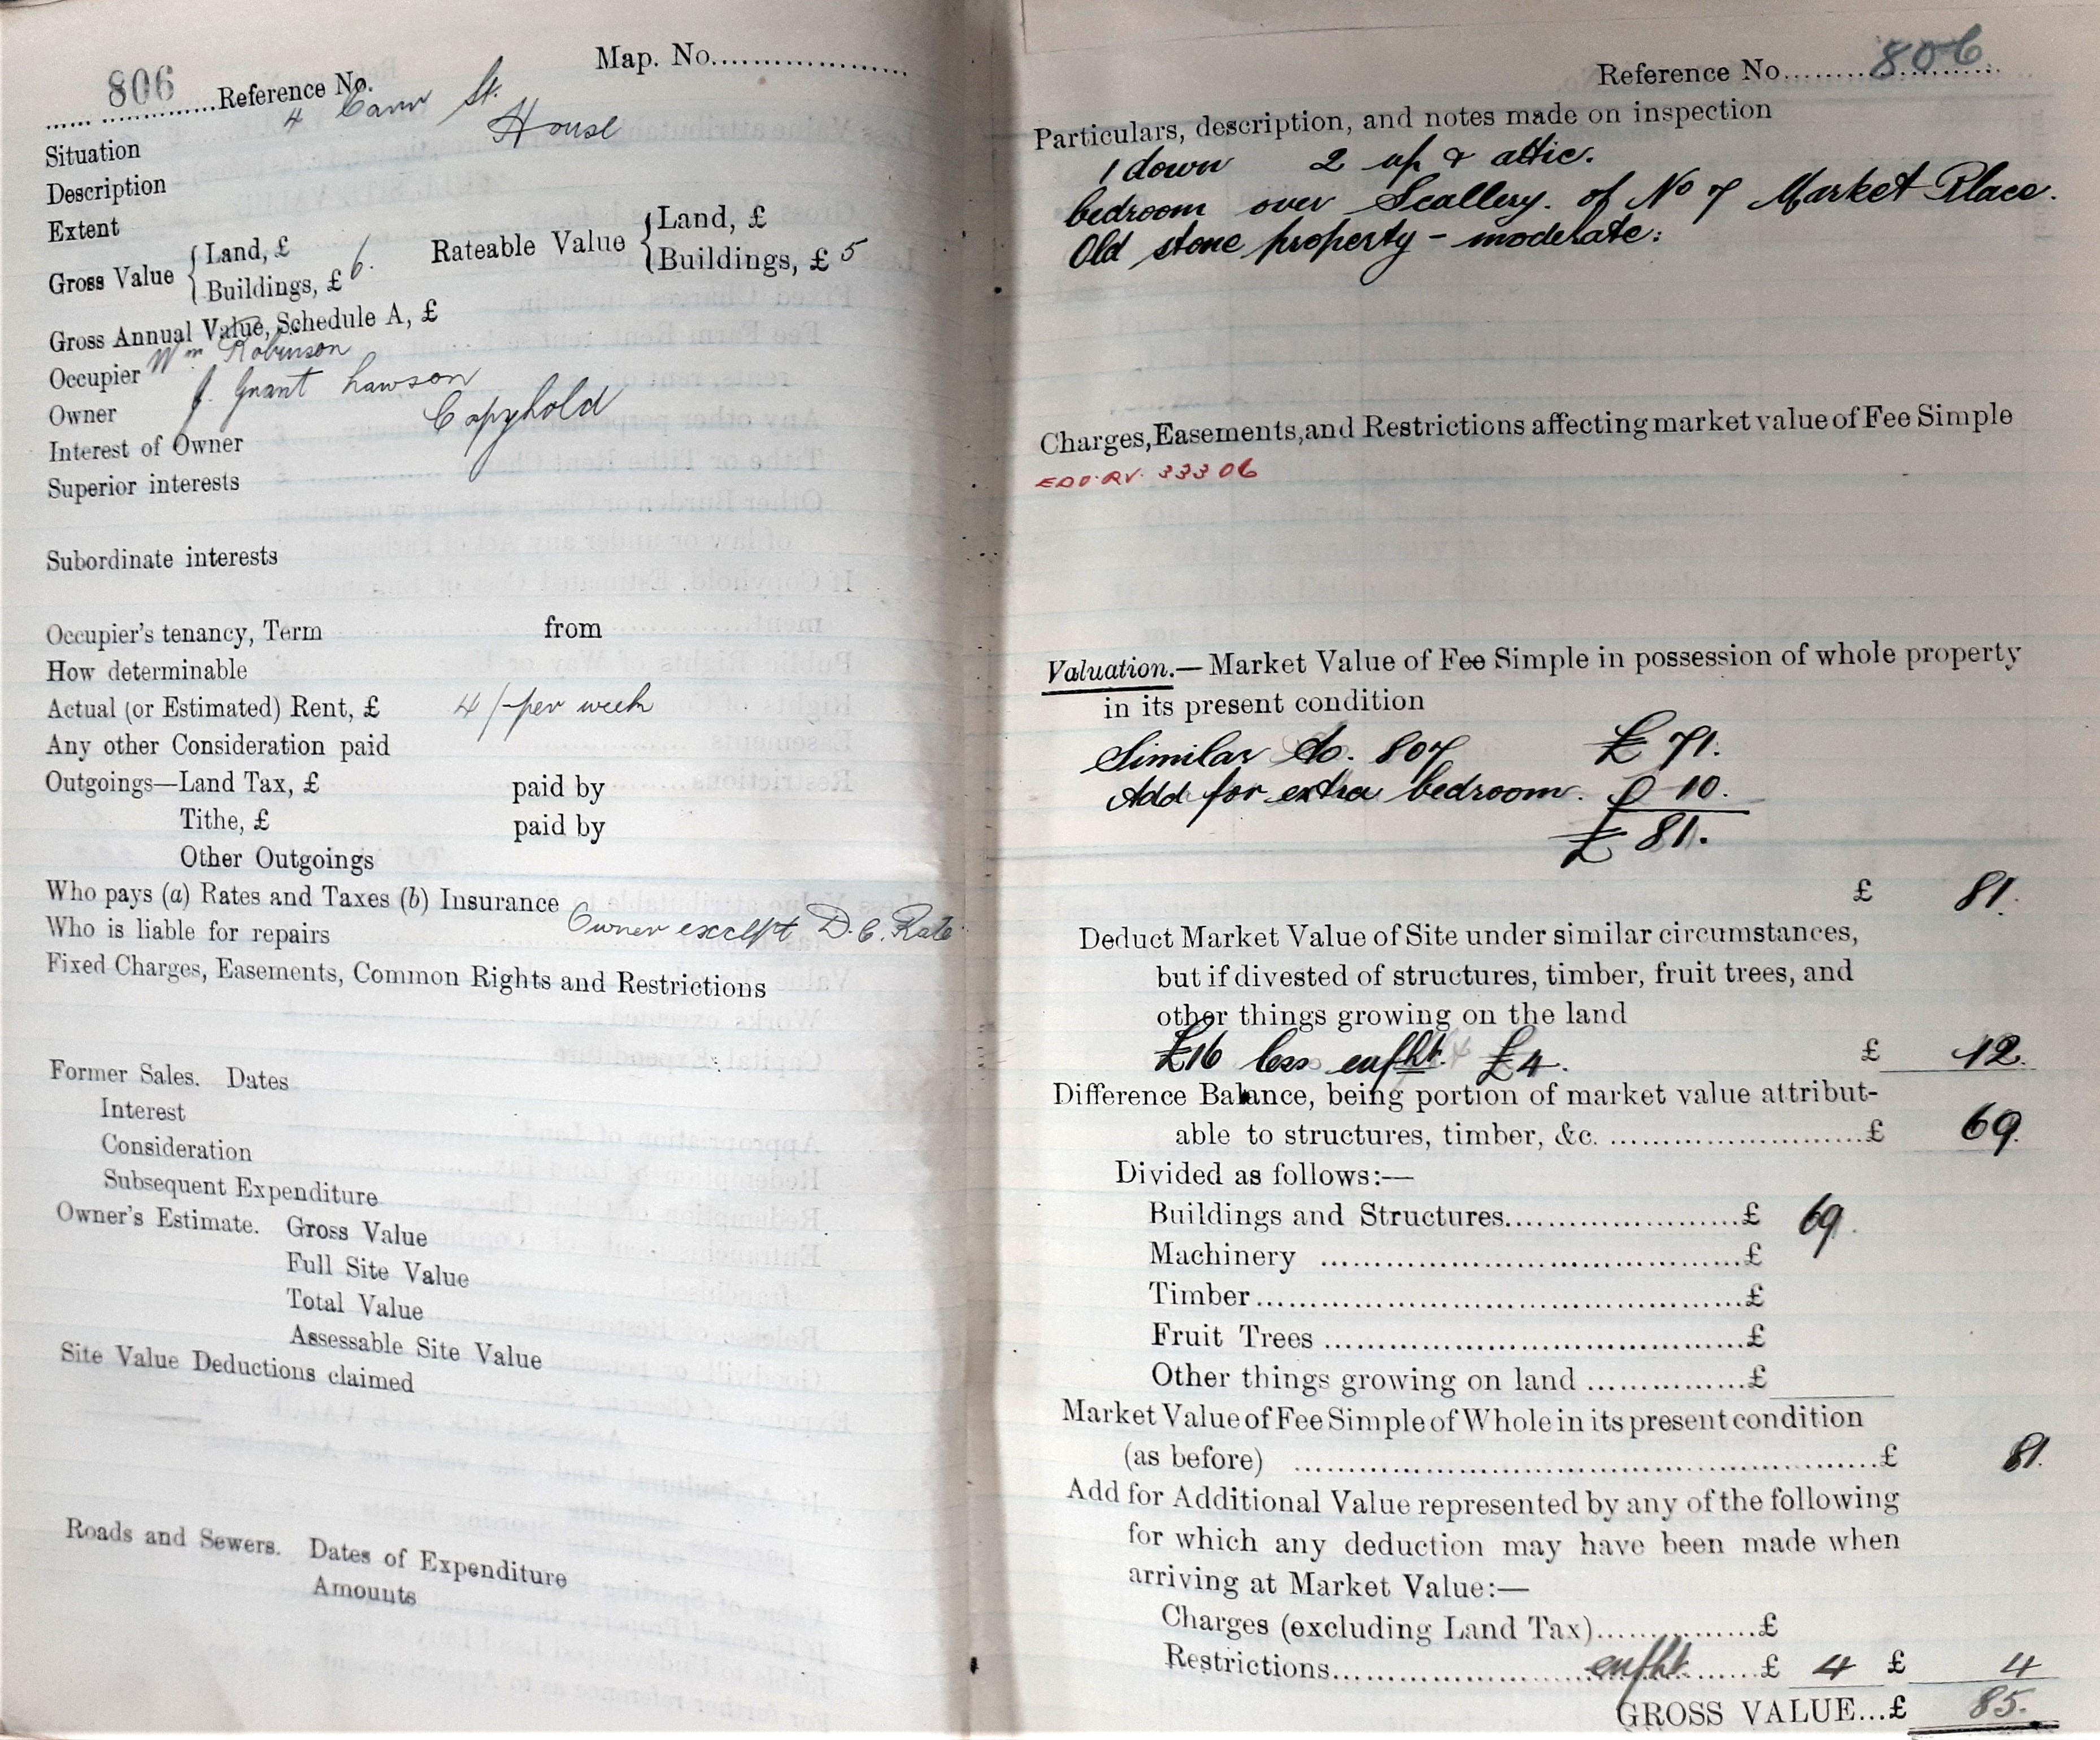 806 Reference No. Map. No.
4 Carr St.
Situation
House
Description
Extent
Gross Value { Land, £
Buildings, £ 6.
Rateable Value { Land, £
Buildings, £ 5
Gross Annual Value, Schedule A, £
Occupier Wm Robinson
Owner J. Grant Lawson
Interest of Owner Copyhold
Superior interests
Subordinate interests
Occupier's tenancy, Term from
How determinable
Actual (or Estimated) Rent, £ 4/- per week
Any other Consideration paid
Outgoings—Land Tax, £ paid by
Tithe, £ paid by
Other Outgoings
Who pays (a) Rates and Taxes (b) Insurance
Who is liable for repairs Owner except D.C. Rate
Fixed Charges, Easements, Common Rights and Restrictions
Former Sales. Dates
Interest
Consideration
Subsequent Expenditure
Owner's Estimate. Gross Value
Full Site Value
Total Value
Assessable Site Value
Site Value Deductions claimed
Roads and Sewers. Dates of Expenditure
Amounts
Reference No. 806
Particulars, description, and notes made on inspection
1 down 2 up & attic.
bedroom over Scallery. of No 7 Market Place.
Old stone property - moderate:
Charges, Easements, and Restrictions affecting market value of Fee Simple
33306
Valuation.— Market Value of Fee Simple in possession of whole property
in its present condition
Similar to. 807 £ 71.
Add for extra bedroom. £ 10.
£ 81.
£ 81.
Deduct Market Value of Site under similar circumstances,
but if divested of structures, timber, fruit trees, and
other things growing on the land
£16 less enfht. £4. £ 12.
Difference Balance, being portion of market value attribut-
able to structures, timber, &c. £ 69.
Divided as follows:—
Buildings and Structures £ 69.
Machinery £
Timber £
Fruit Trees £
Other things growing on land £
Market Value of Fee Simple of Whole in its present condition
(as before) £ 81.
Add for Additional Value represented by any of the following
for which any deduction may have been made when
arriving at Market Value:—
Charges (excluding Land Tax) £
Restrictions enfht £ 4 £ 4
GROSS VALUE...£ 85.